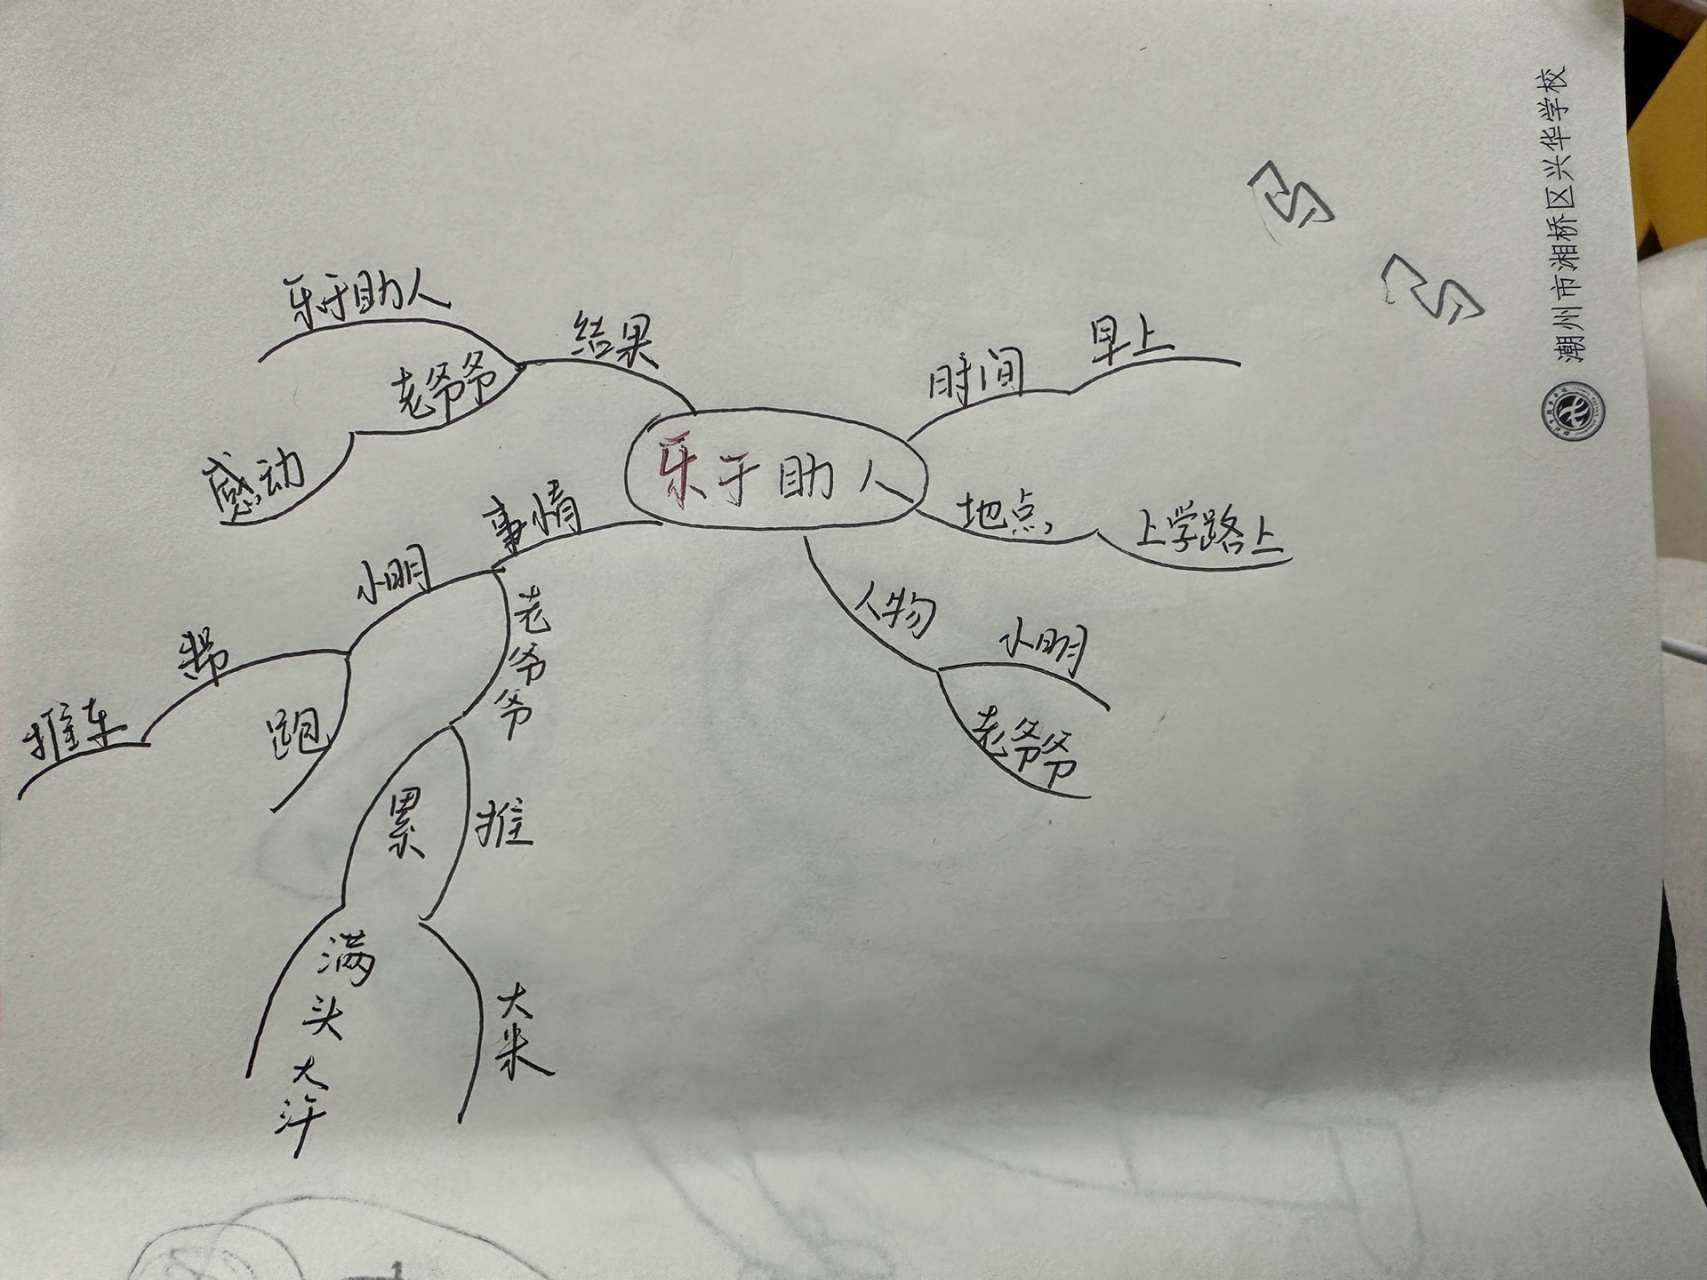 乐于助人
时间
早上
地点
上学路上
人物
小明
老爷爷
事情
小明
帮
推车
跑
老爷爷
累
满头大汗
推
大米
结果
乐于助人
老爷爷
感动
潮州市湘桥区兴华学校